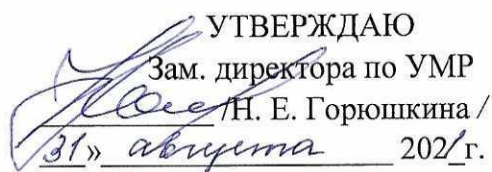 УТВЕРЖДАЮ
Зам. директора по УМР
/Н. Е. Горюшкина /
31» августа 2021г.